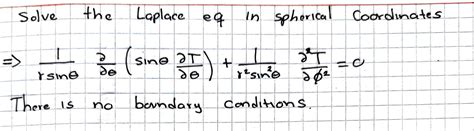 Solve the Laplace eq in spherical Coordinates
⇒ 1/(r sinθ) ∂/∂θ (sinθ ∂T/∂θ) + 1/(r² sin²θ) ∂²T/∂ϕ² = 0
There is no boundary conditions.